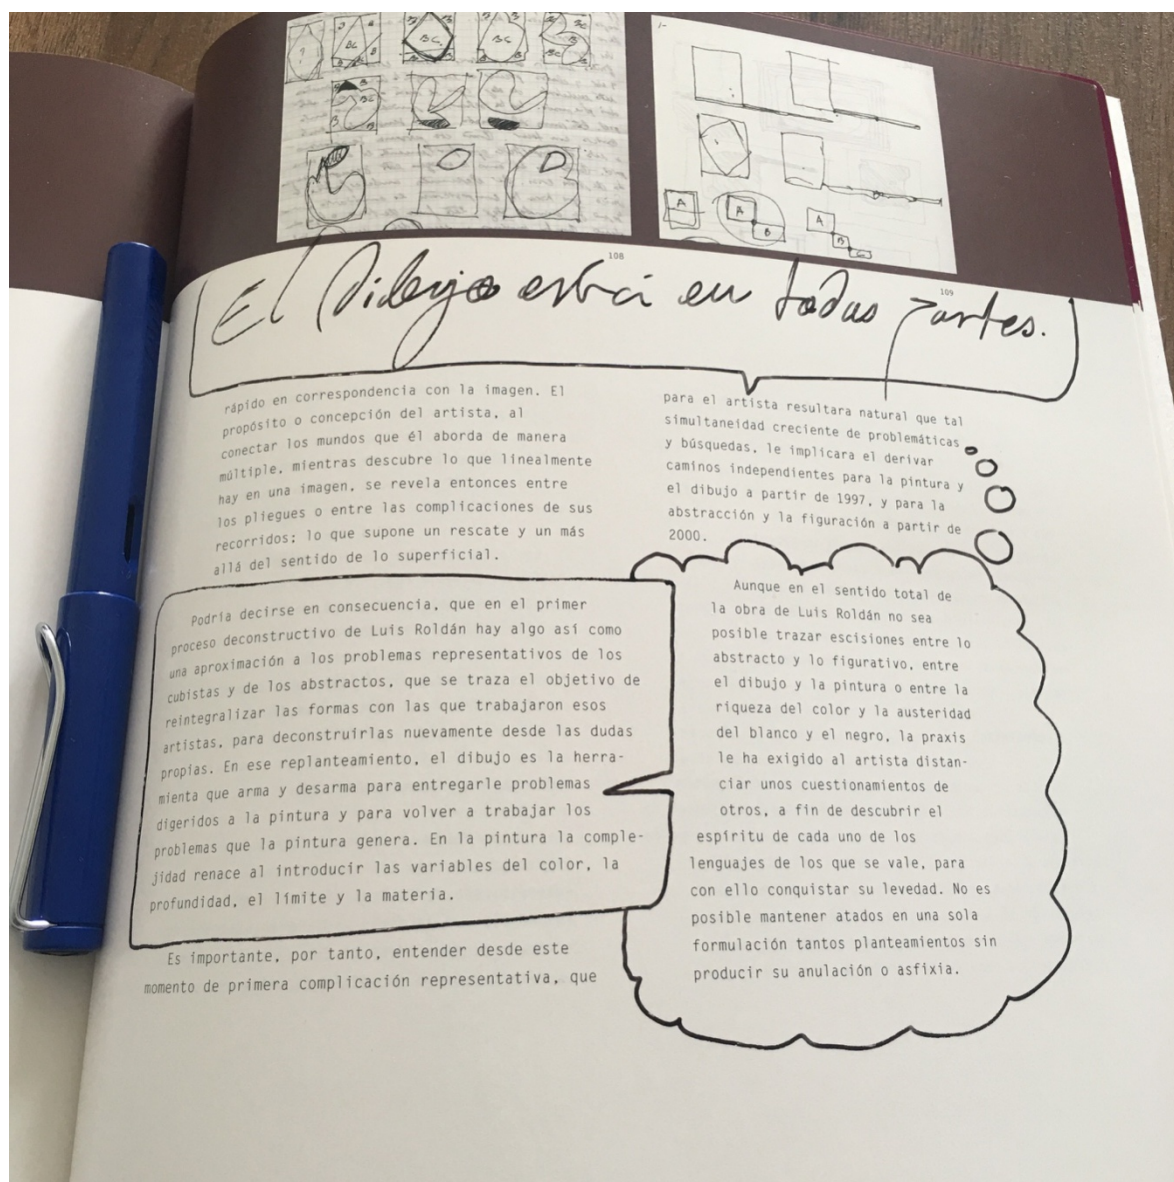 108
109
El Dibujo está en todas partes.
rápido en correspondencia con la imagen. El
propósito o concepción del artista, al
conectar los mundos que él aborda de manera
múltiple, mientras descubre lo que linealmente
hay en una imagen, se revela entonces entre
los pliegues o entre las complicaciones de sus
recorridos; lo que supone un rescate y un más
allá del sentido de lo superficial.
Podría decirse en consecuencia, que en el primer
proceso deconstructivo de Luis Roldán hay algo así como
una aproximación a los problemas representativos de los
cubistas y de los abstractos, que se traza el objetivo de
reintegralizar las formas con las que trabajaron esos
artistas, para deconstruirlas nuevamente desde las dudas
propias. En ese replanteamiento, el dibujo es la herra-
mienta que arma y desarma para entregarle problemas
digeridos a la pintura y para volver a trabajar los
problemas que la pintura genera. En la pintura la comple-
jidad renace al introducir las variables del color, la
profundidad, el límite y la materia.
Es importante, por tanto, entender desde este
momento de primera complicación representativa, que
para el artista resultara natural que tal
simultaneidad creciente de problemáticas
y búsquedas, le implicara el derivar
caminos independientes para la pintura y
el dibujo a partir de 1997, y para la
abstracción y la figuración a partir de
2000.
Aunque en el sentido total de
la obra de Luis Roldán no sea
posible trazar escisiones entre lo
abstracto y lo figurativo, entre
el dibujo y la pintura o entre la
riqueza del color y la austeridad
del blanco y el negro, la praxis
le ha exigido al artista distan-
ciar unos cuestionamientos de
otros, a fin de descubrir el
espíritu de cada uno de los
lenguajes de los que se vale, para
con ello conquistar su levedad. No es
posible mantener atados en una sola
formulación tantos planteamientos sin
producir su anulación o asfixia.